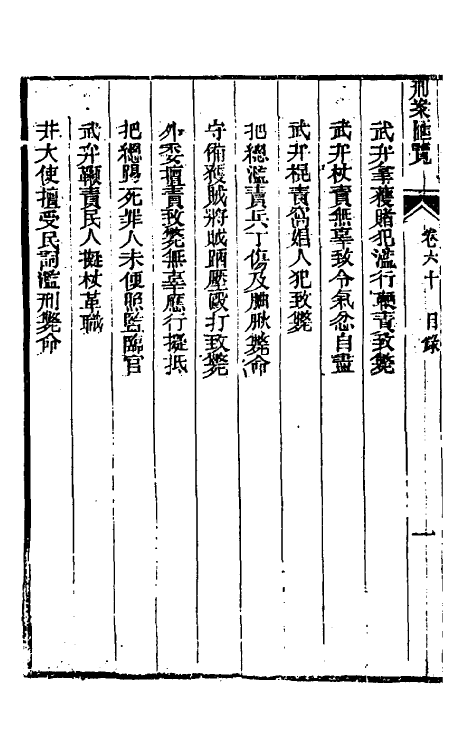 刑案匯覽 卷六十 目錄 一
武弁拏獲賭犯濫行棗責致斃
武弁杖責無辜致令氣忿自盡
武弁棍責窩娼人犯致斃
把總濫責兵丁傷及臁肕斃命
守備獲賊將賊跴壓毆打致斃
外委擅責致斃無辜應行擬抵
把總踢死罪人未便照監臨官
武弁鞭責民人擬杖革職
井大使擅受民詞濫刑斃命